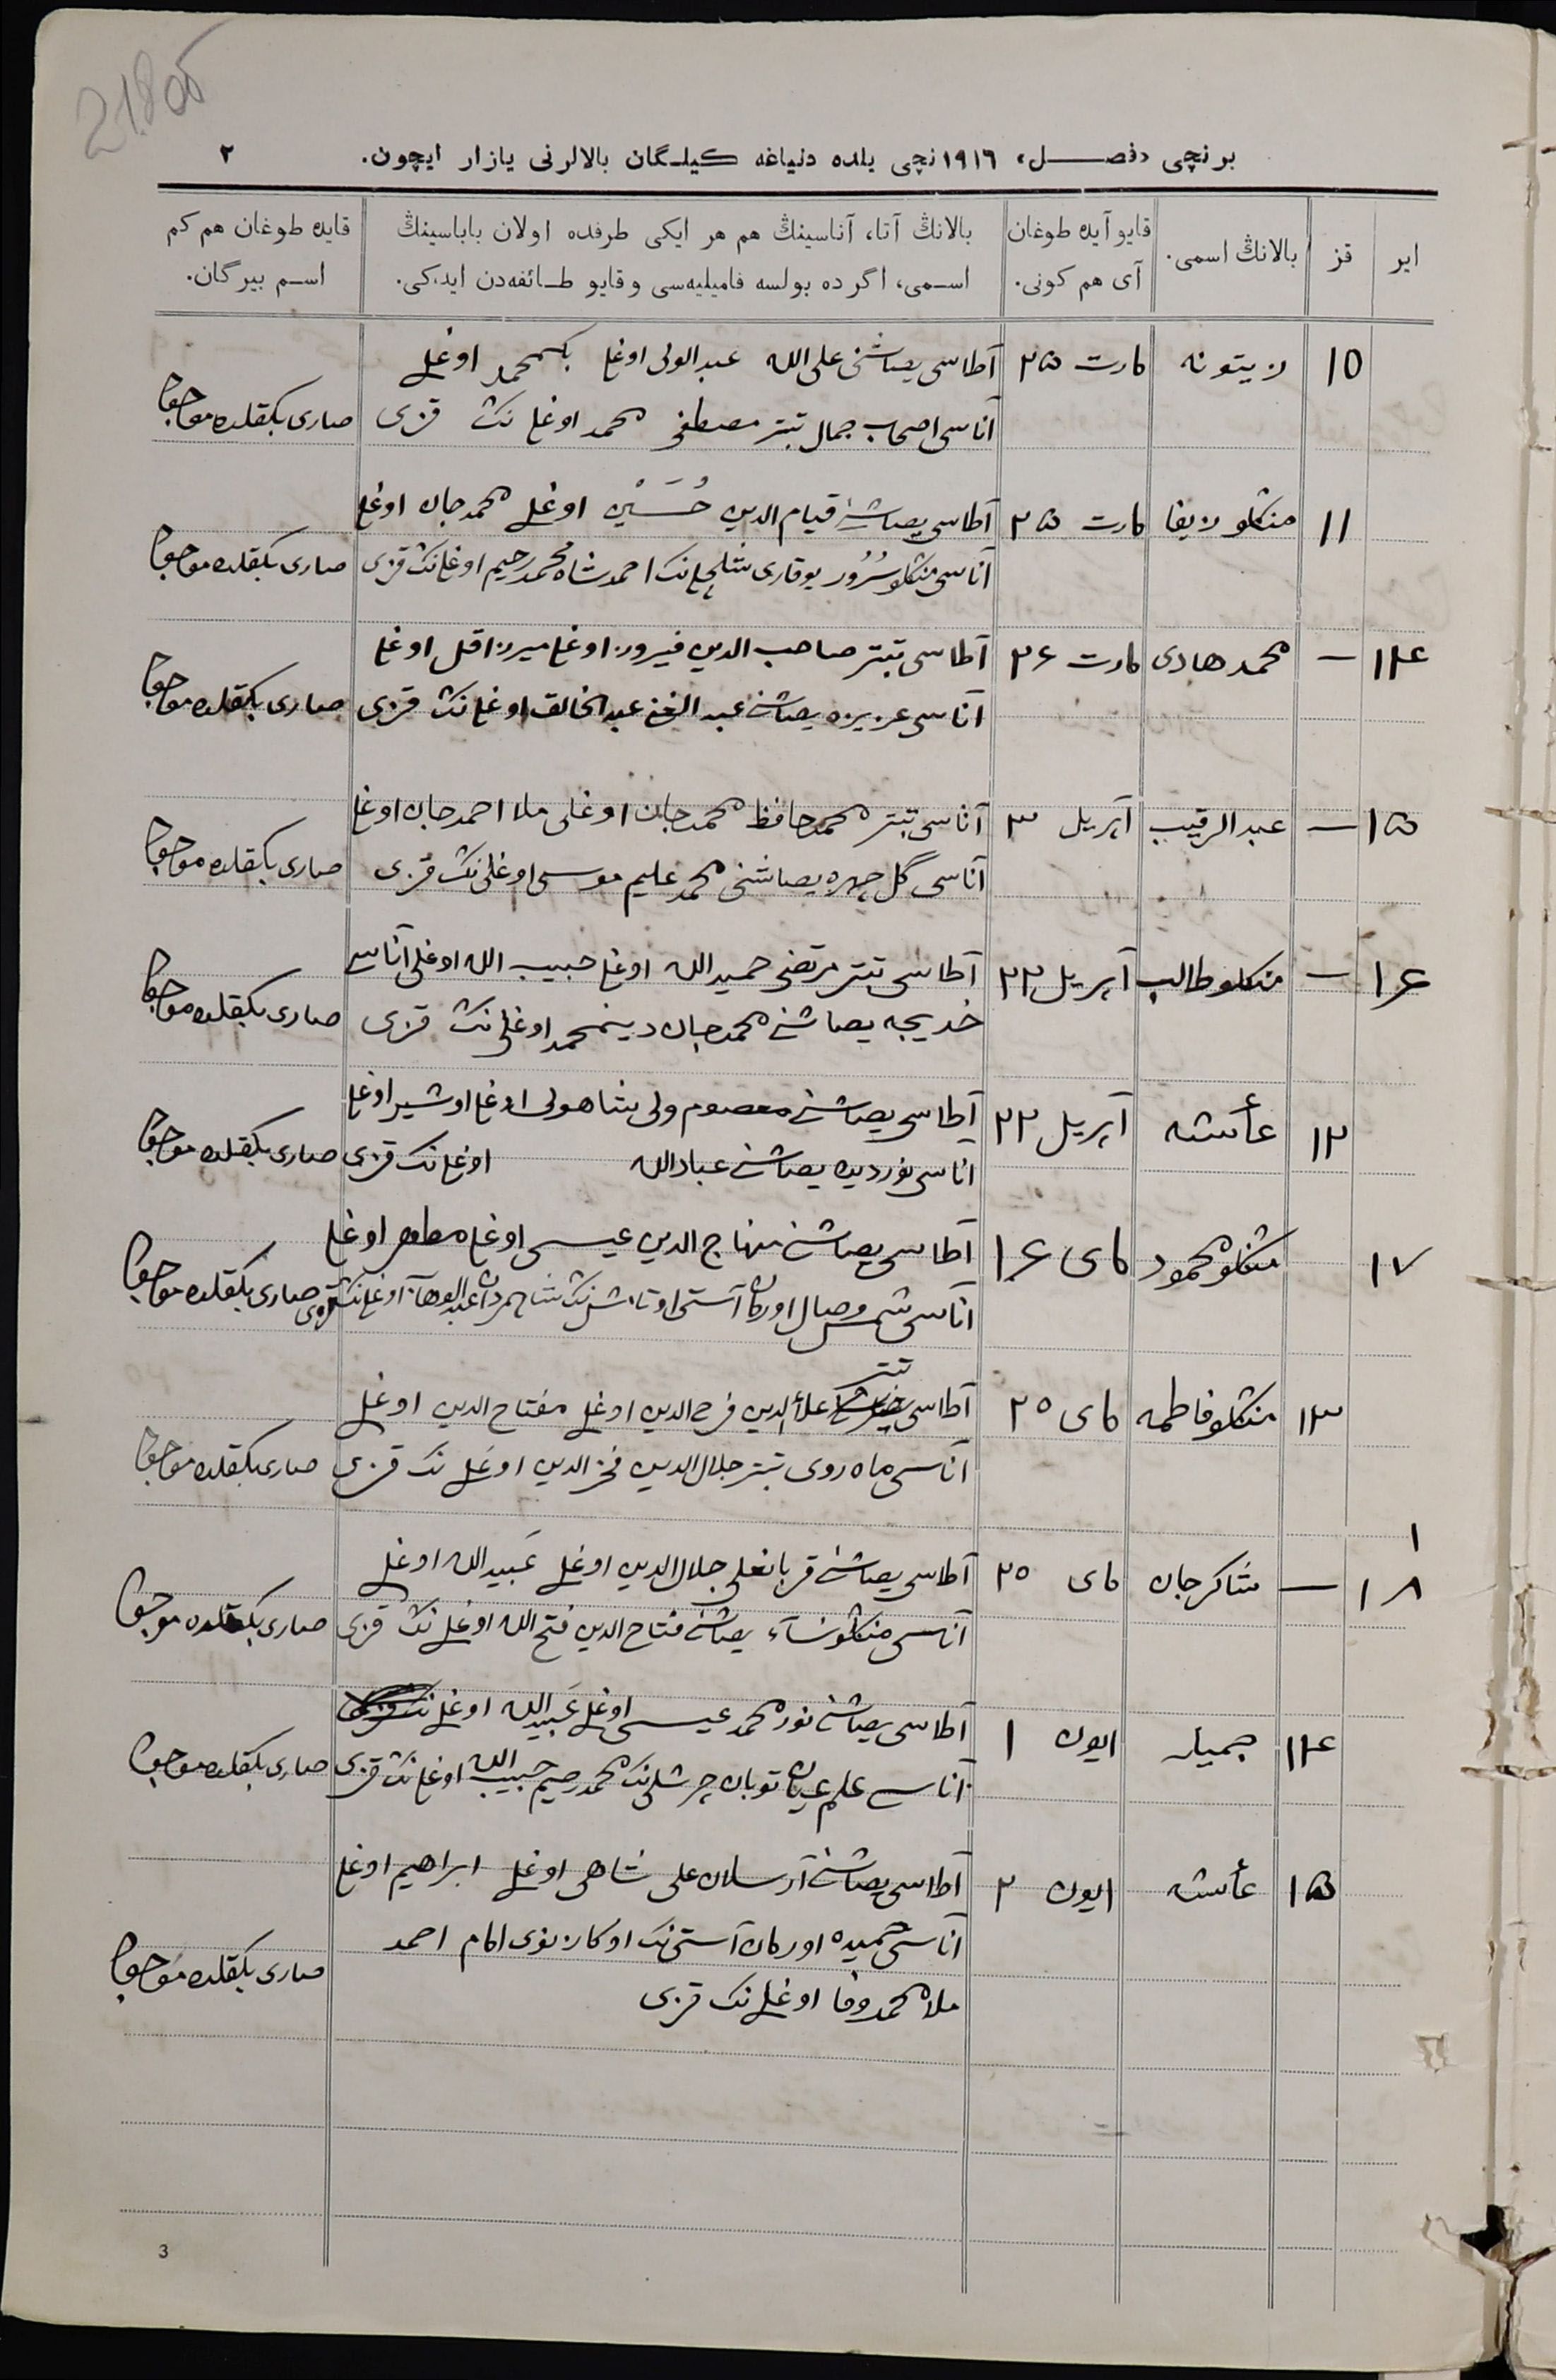 21806
برنچی «فصـــل» ١٩١٦ نچی یلده دنیاغه کیلـگان بالالرنی یازار ایچون. ٢
ایر
قز
بالانڭ اسمی.
قایو آیده طوغان
آی هم کونی.
بالانڭ آتا، آناسینڭ هم هر ایکی طرفده اولان باباسینڭ
اسـمی، اگر ده بولسه فامیلیه‌سی و قایو طـائفه‌دن ایدکی.
قایده طوغان هم کم
اسـم بیرگان.
١٥ زیتونه مارت ٢۵ آطاسی یصاشنی علی الله عبدالولی اوغلی بکمحمد اوغلی
آناسی اصحاب جمال تبتر مصطفی محمد اوغلی نڭ قزی صاری بکقلده
١١ منکلو زیفا مارت ٢۵ آطاسی یصاشنی قیام الدین حُسَیْن اوغلی محمدجان اوغلی
آناسی منکلو سُرُور یوقاری احمدشاه محمدرحیم اوغلی نڭ قزی صاری بکقلده
١۴ — محمد هادی مارت ٢۶ آطاسی تبتر صاحب الدین فیروز اوغلی میرزاقل اوغلی
آناسی عزیزه یصاشنی عبدالغنی عبدالخالق اوغلی نڭ قزی صاری بکقلده
١۵ — عبدالرقیب آپریل ٣ آتاسی تبتر محمدحافظ محمدجان اوغلی ملا احمدجان اوغلی
آناسی گل چهره یصاشنی محمد علیم موسی اوغلی نڭ قزی صاری بکقلده
١۶ — منکلو طالب آپریل ٢٢ آطاسی تبتر مرتضی حمیدالله اوغلی حبیب الله اوغلی آناسی
خدیجه یصاشنی محمدجان دینمحمد اوغلی نڭ قزی صاری بکقلده
١٢ عأئشه آپریل ٢٢ آطاسی یصاشنی معصوم ولی شاهولی اوغلی اوشیر اوغلی
اناسی نوردیده یصاشنی عبادالله اوغلی نک قزی صاری بکقلده
١٧ منکلو محمود مای ١۶ آطاسی یصاشنی منهاج الدین عیسی اوغلی مطهر اوغلی
آناسی شمس وصال اورمان آستی شاهمردان عبدالوهاب اوغلی نڭ قزی صاری بکقلده
١٣ منکلو فاطمه مای ٢٥ آطاسی تبتر علأالدین فرح الدین اوغلی مفتاح الدین اوغلی
آناسی ماه روی تبتر جلال الدین فخرالدین اوغلی نڭ قزی صاری بکقلده
١
١٨ — شاکرجان مای ٢٥ آطاسی یصاشنی قربانعلی جلال الدین اوغلی عَبیدالله اوغلی
آناسی منکلو نسآء یصاشنی فتاح الدین فتح الله اوغلی نڭ قزی صاری بکقلده
١۴ جمیله ایون ١ آطاسی یصاشنی نورمحمد عیسی اوغلی عَبیدالله اوغلی
آناسی علم عیان توبان محمدرحیم حبیب الله اوغلی نڭ قزی صاری بکقلده
١۵ عأئشه ایون ٢ آطاسی یصاشنی آرسلان علی شاهی اوغلی ابراهیم اوغلی
آناسی حمیده اورمان آستی نڭ امام احمد
ملا محمد وفا اوغلی نڭ قزی صاری بکقلده
3